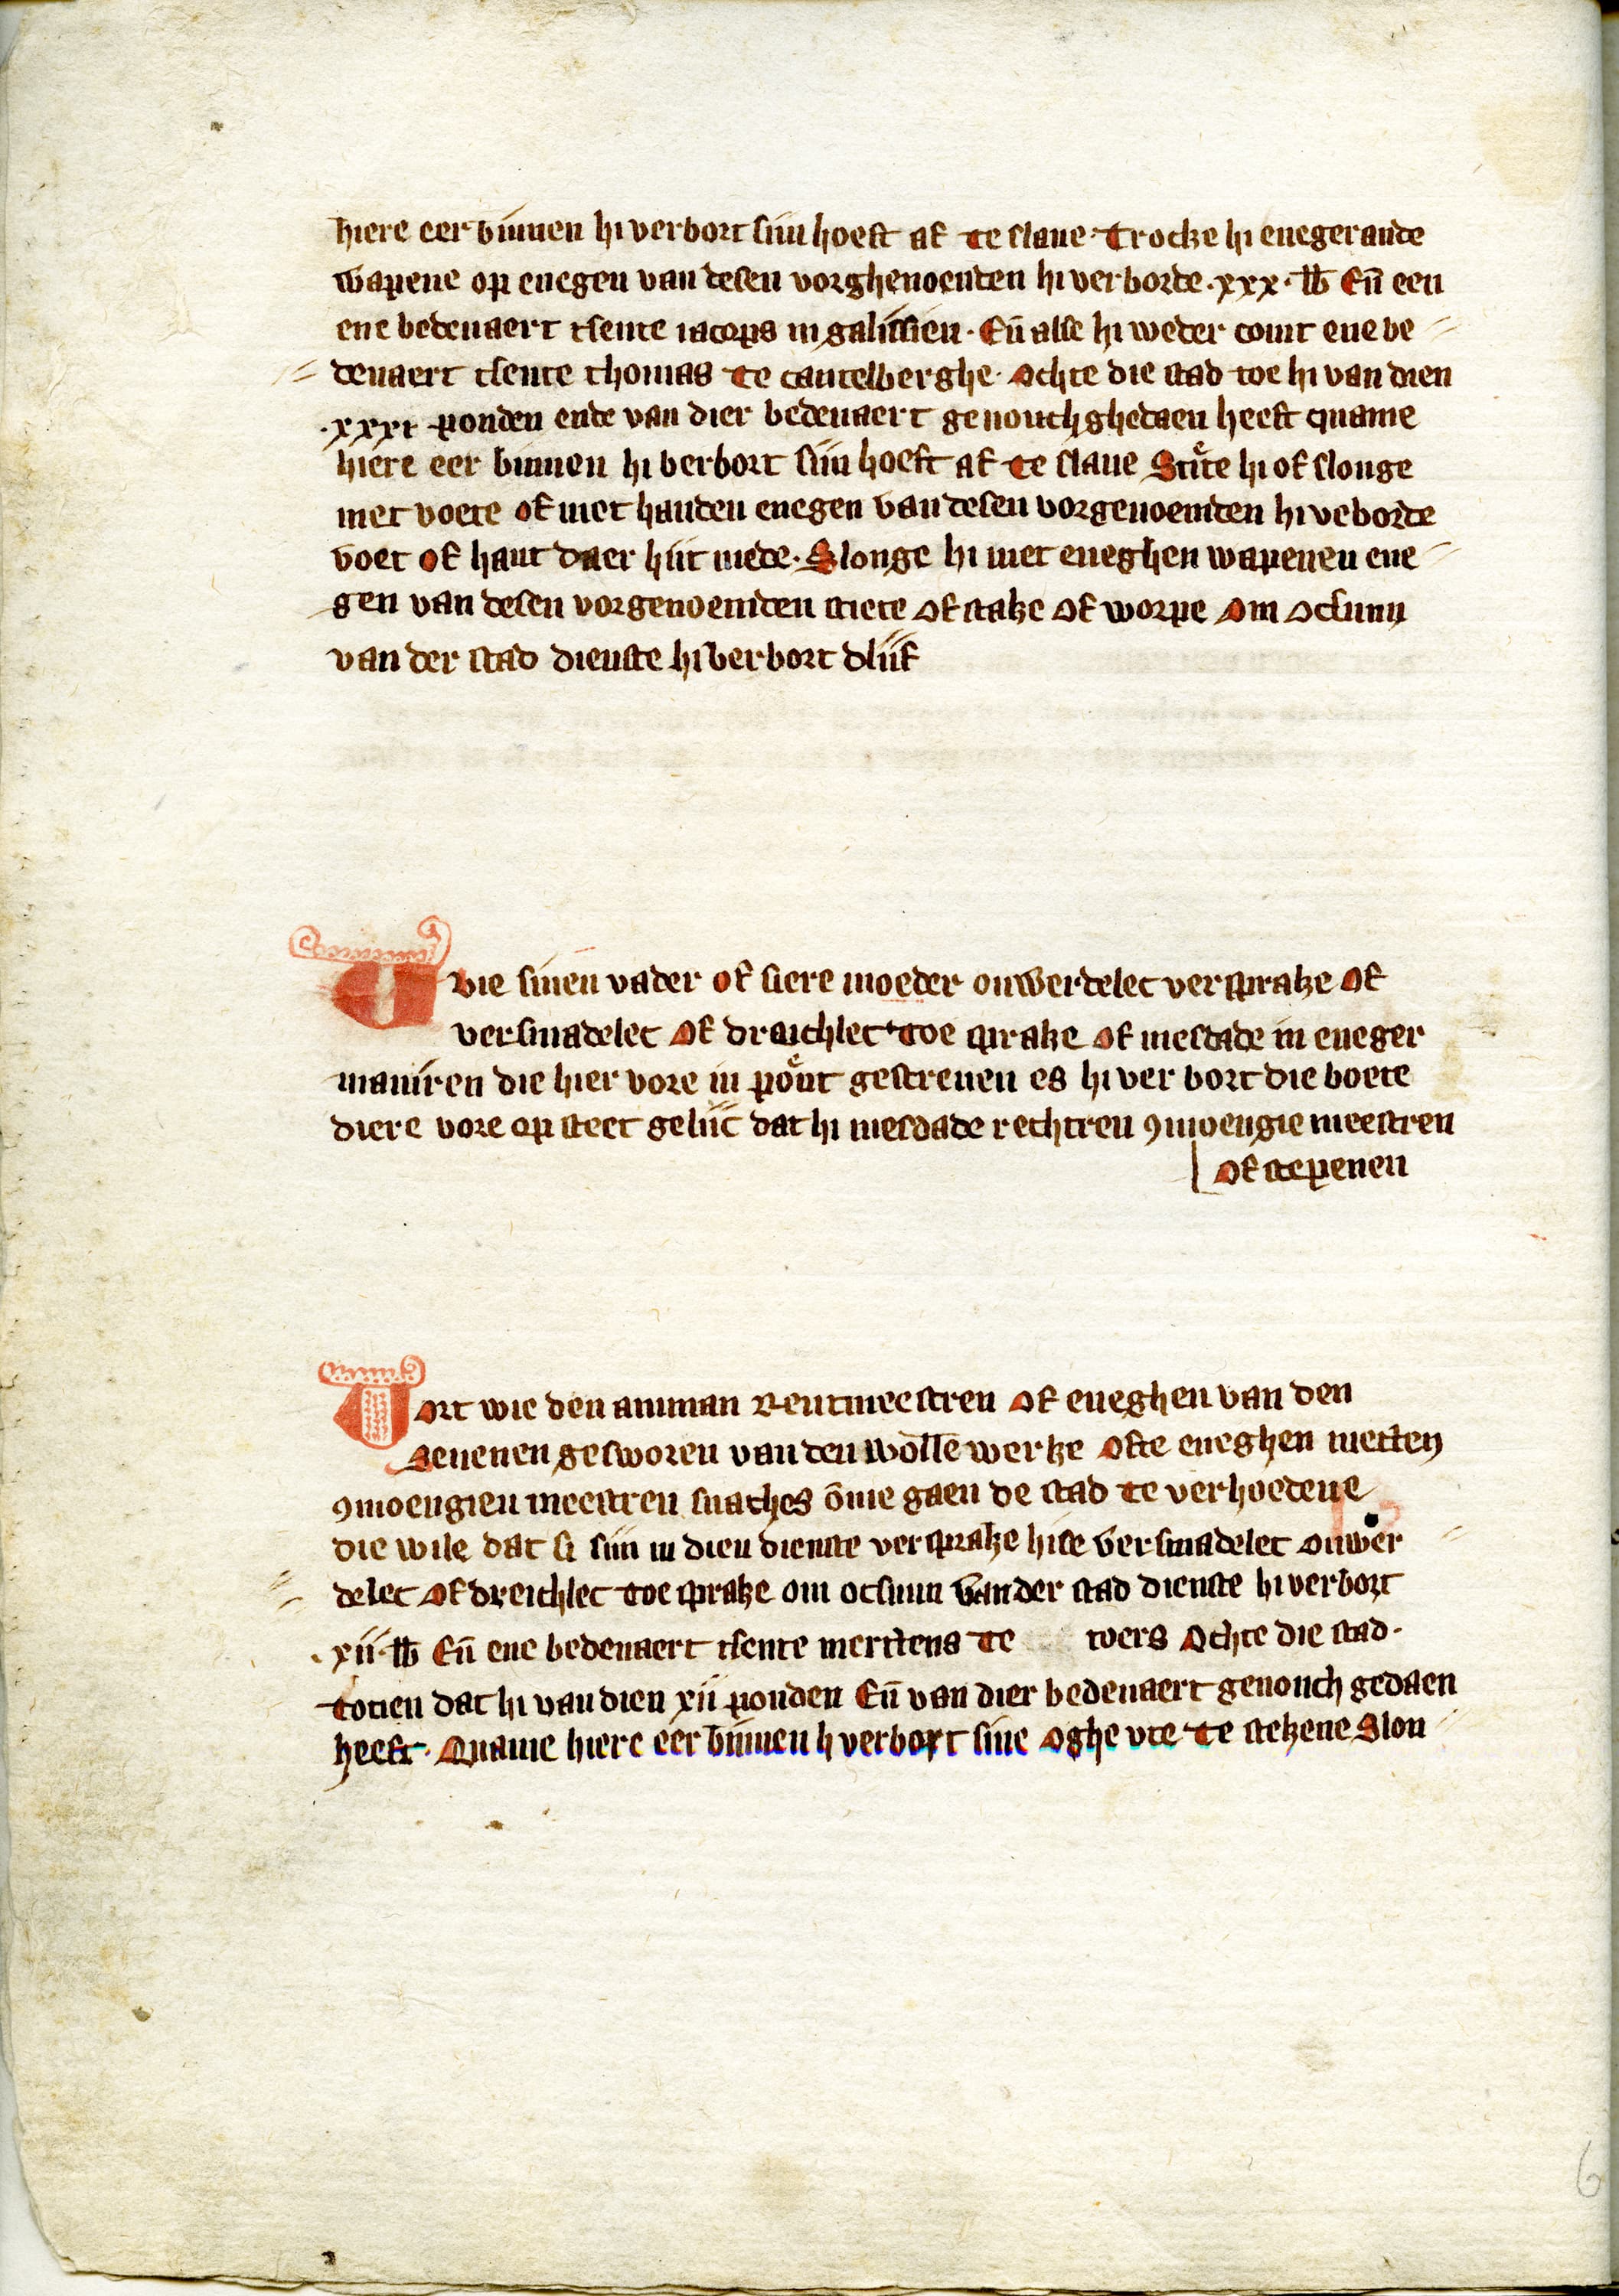 hiere eer binnen hi verbort siin hoeft af te slane · Trocke hi enegerande
wapene op enegen van desen vorghenoenden hi verborde · xxx · lb En̄ een
ene bedeuaert tsente iacops in galissien · En̄ alse hi weder comt ene be
deuaert tsente thomas te cantelberghe · Ochte die stad toe hi van dien
· xxxi ponden ende van dier bedeuaert genouch ghedaen heeft quame
hiere eer binnen hi verbort siin hoeft af te slane hi of slonge
met voete of met handen enegen van desen vorgenoemden hi veborde
voet of hant daer hiit mede · Slonge hi met eneghen wapenen ene
gen van desen vorgenoemden stiete of stake of worpe om ocsuun
van der stad dienste hi verbort dliif
Wie sinen vader of siere moeder onwerdelec versprake of
versmadelec of draichlec toe sprake of mesdade in eneger
maniren die hier vore in gescreuen es hi verbort die boete
diere vore op steet geliic dat hi mesdade rechtren ꝯmoengiemeestren
of scepenen
Vort wie den amman Rentmeestren of eneghen van den
Seuenen gesworen van den wollē werke ofte eneghen metten
ꝯmoengien meestren snachts ōme gaen de stad te verhoedene
die wile dat si siin in dien dienste versprake hise versmadelec onwer
delec of dreichlec toe sprake om ocsuun van der stad dienste hi verbort
· xii · lb En̄ ene bedeuaert tsente merttens te toers Ochte die stad ·
totien dat hi van dien xii ponden En̄ van dier bedeuaert genouch gedaen
heeft · Quame hiere eer binnen h verbort sine oghe vte te stekene Slon
6